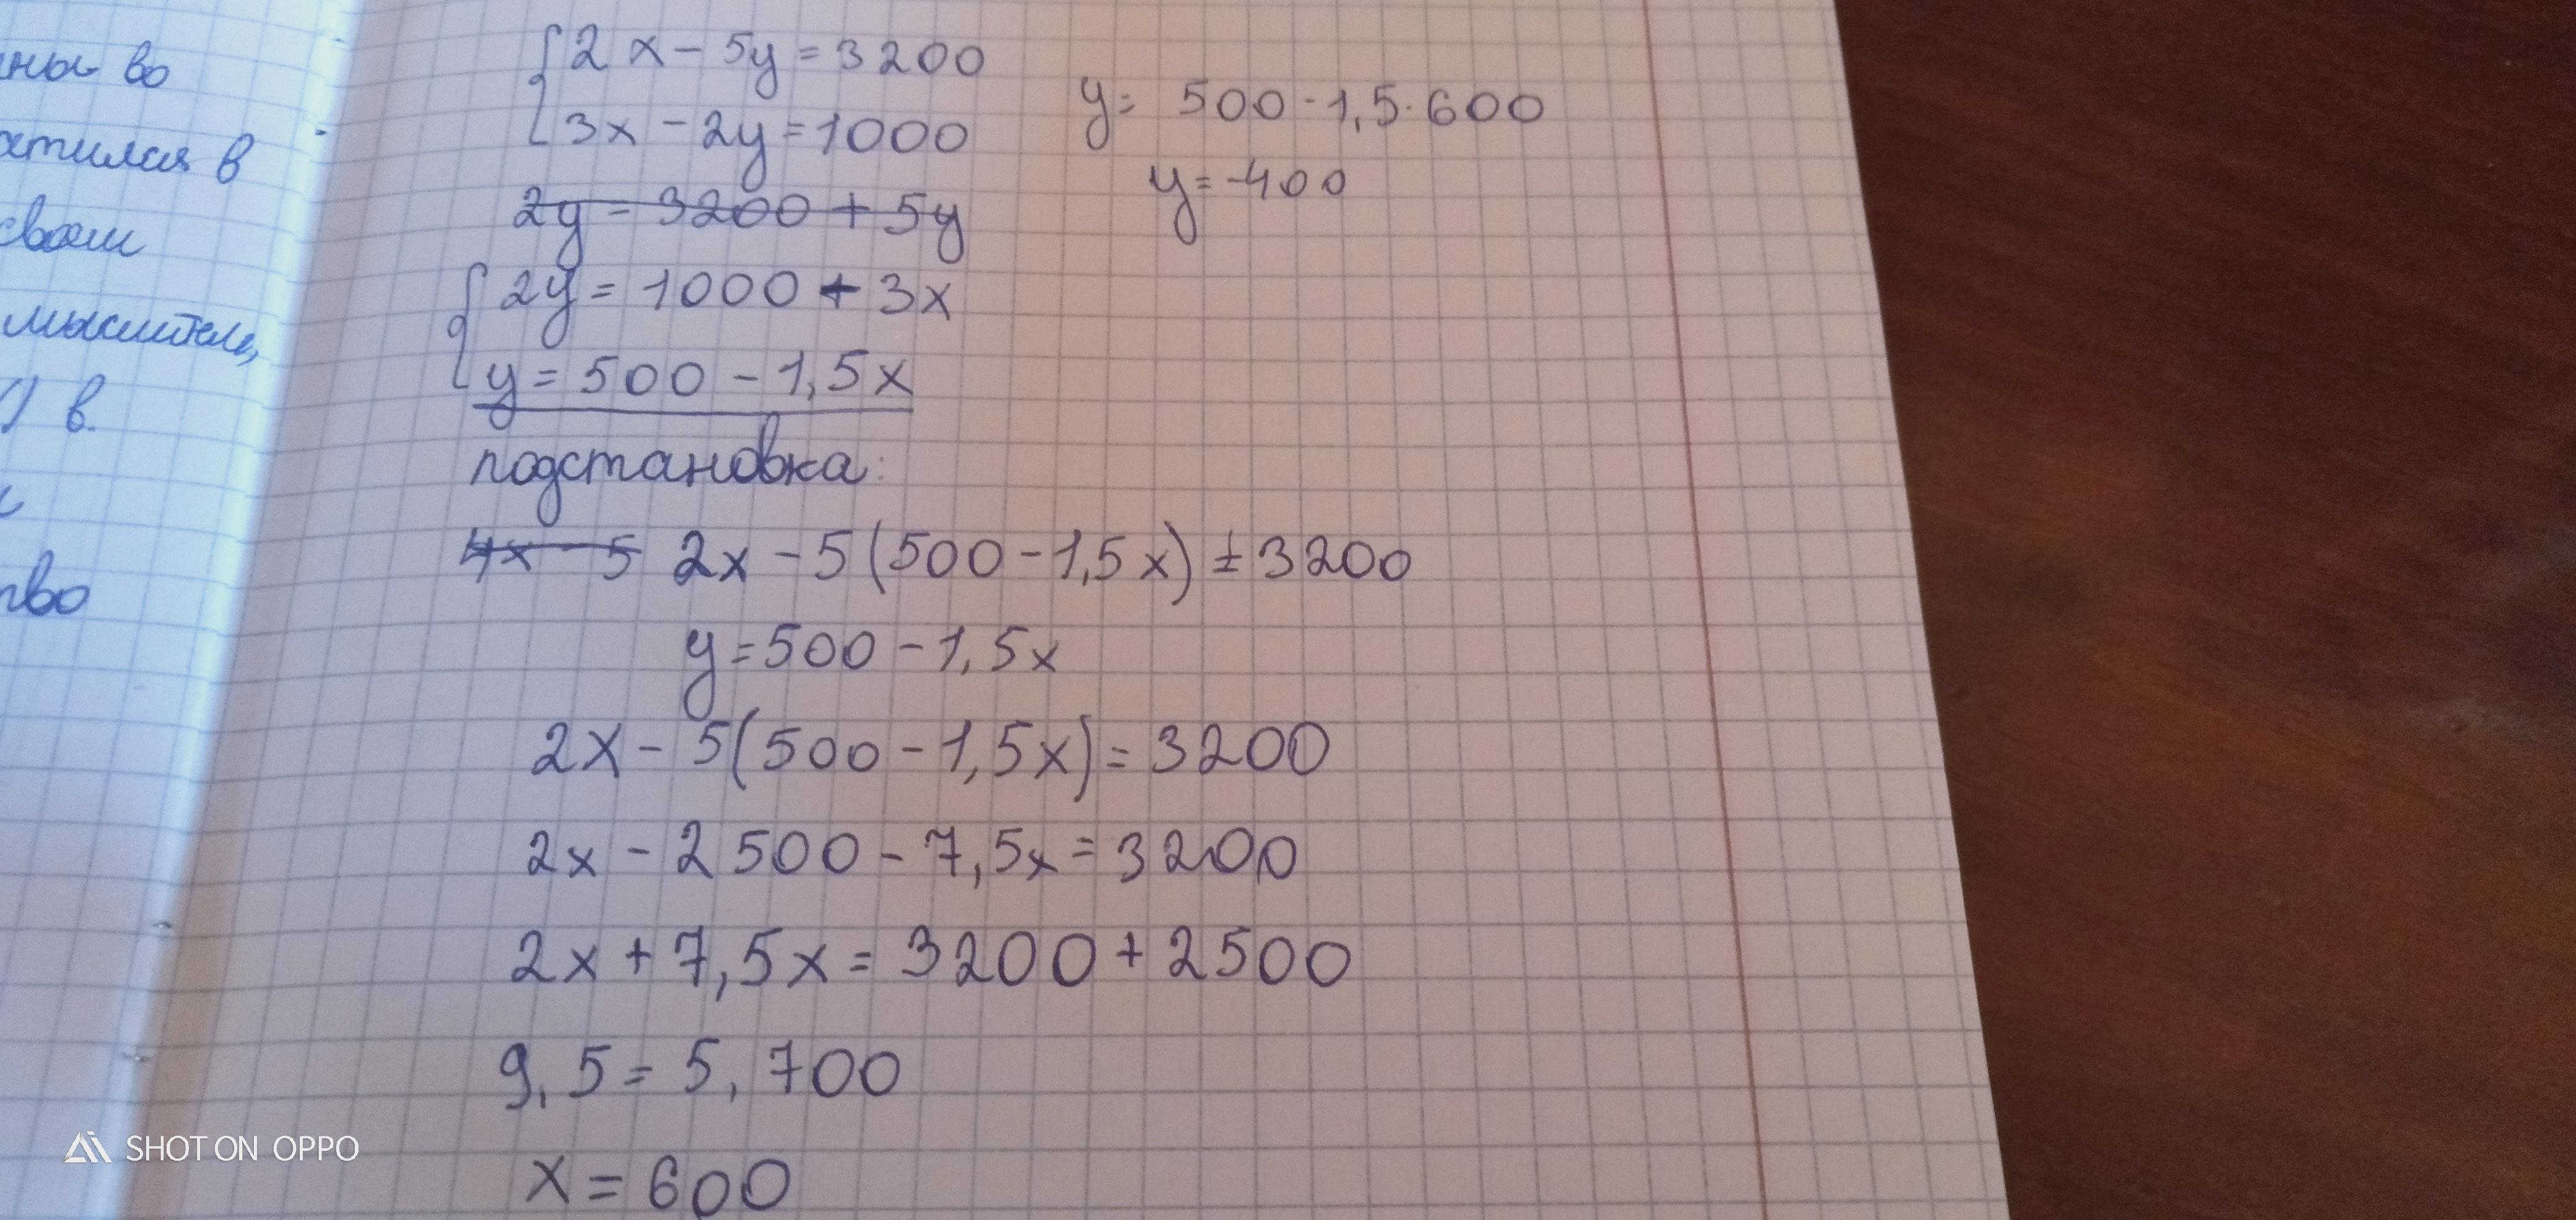 ны во
атился в
своем
мыслителе,
) в.
тво
2x - 5y = 3200
3x - 2y = 1000
2y = 3200 + 5y
2y = 1000 + 3x
y = 500 - 1,5x
подстановка:
4x - 5 2x - 5(500 - 1,5x) = 3200
y = 500 - 1,5x
2x - 5(500 - 1,5x) = 3200
2x - 2500 - 7,5x = 3200
2x + 7,5x = 3200 + 2500
9,5 = 5,700
x = 600
y = 500 - 1,5 · 600
y = -400
SHOT ON OPPO